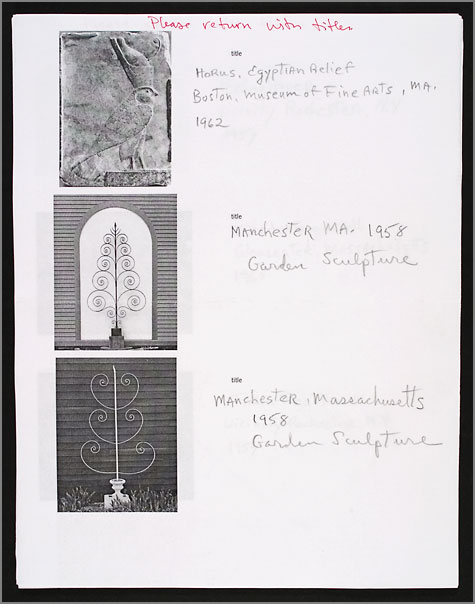 Please return with titles.
title
Horus, Egyptian Relief
Boston, Museum of Fine Arts, MA.
1962
title
Manchester MA. 1958
Garden Sculpture
title
Manchester, Massachusetts
1958
Garden Sculpture